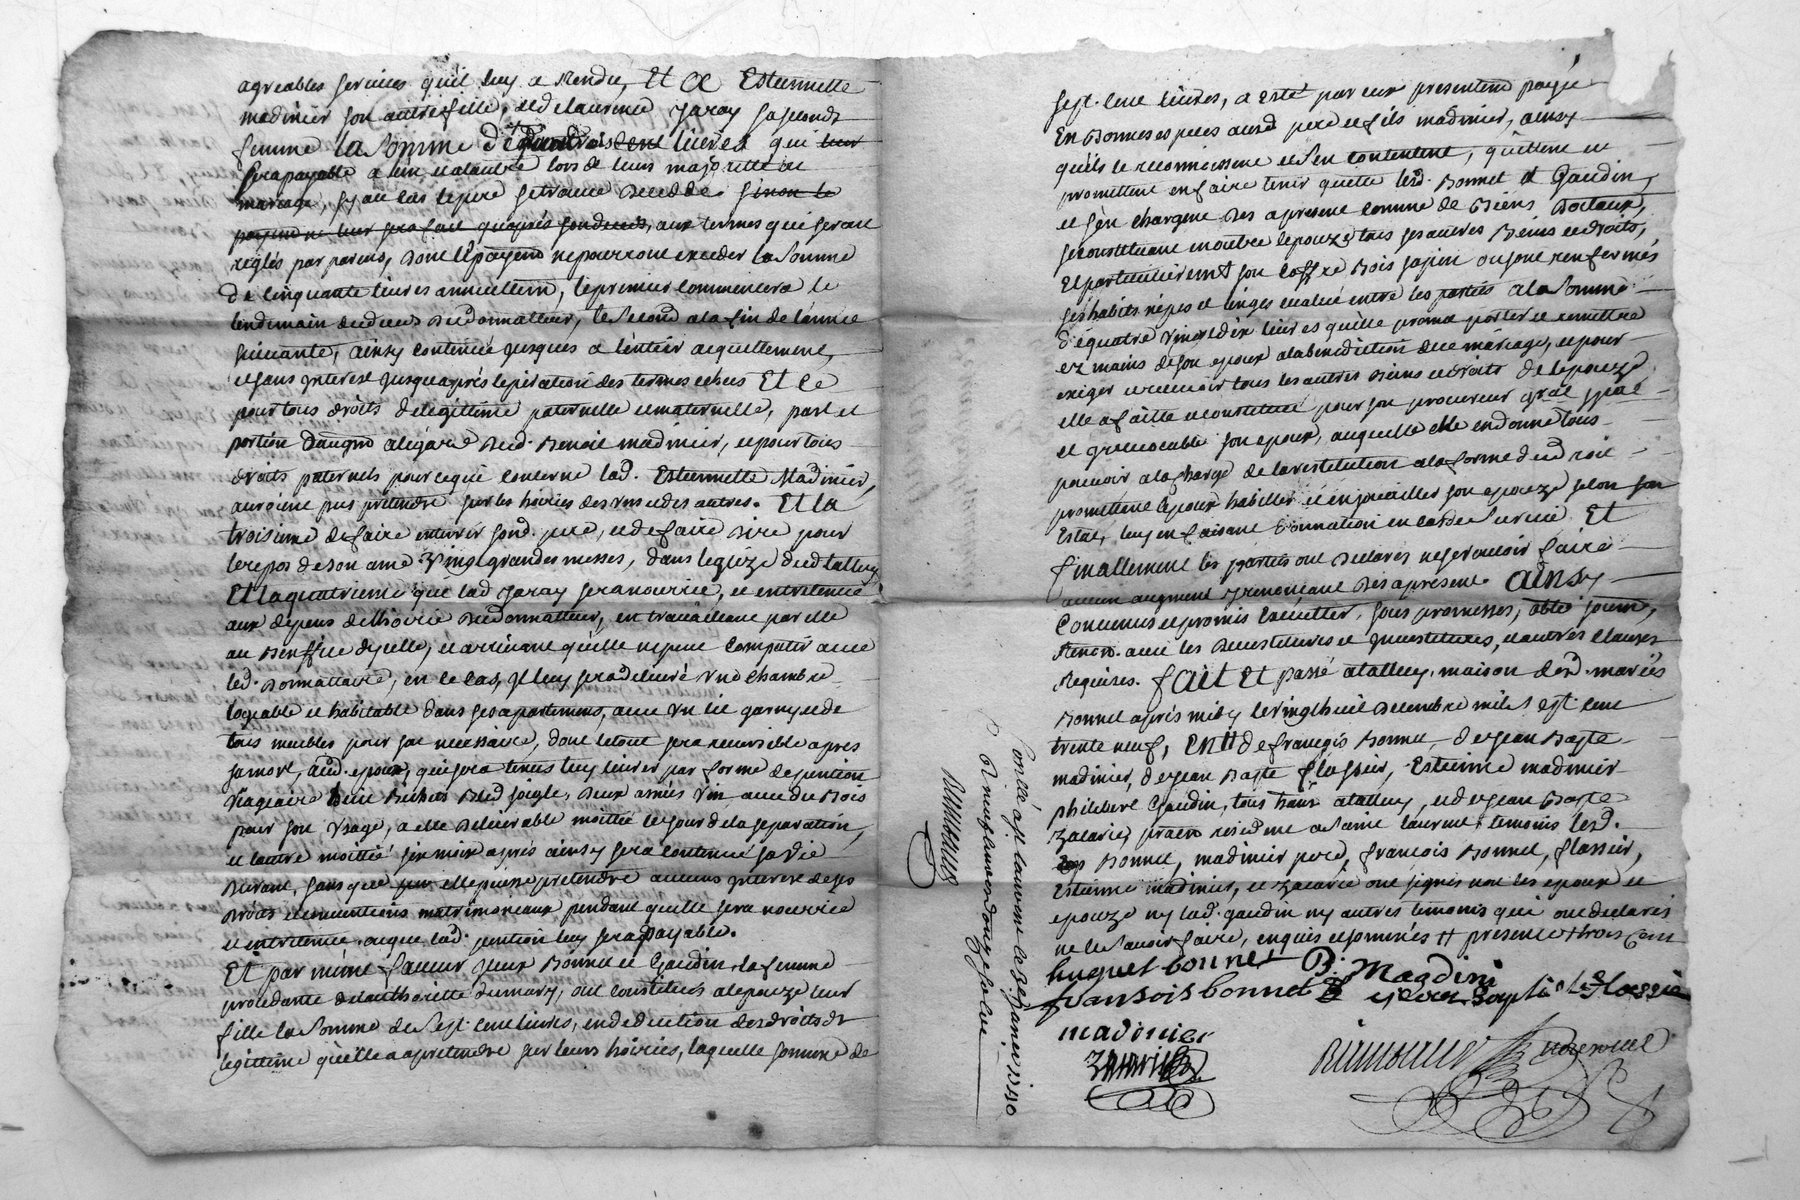 agreables services qu'il luy a Rendu, Et a Estiennette
madinier son autre fille, et de laurence Jaray sa seconde
femme la somme de trois cent livres qui leur
sera payable a un et a l'autre lors de leurs majoritté ou
mariage, sy au cas le pere se trouve decedde sinon le
payem ne leur sera fait qu'aprés son deced, aux termes qui seront
reglés par parens, dont le payem ne pourront exceder la somme
de cinquante livres annuellem, le premier commencera le
lendemain du deces dud donnatteur, le second a la fin de l'année
suivante, ainsy continué jusques a l'entier acquittement,
et sans interest jusqu'aprés l'expiration des termes echus Et ce
pour tous droits de legittime paternelle et maternelle, part et
portion d'augm a l'égard dud. Benoit madinier, et pour tous
droits paternels pour ce qui concerne lad. Estiennette Madinier,
auroient pus pretendre sur les hoiries des uns et des autres. Et la
troisieme de faire enterrer sond. pere, et de faire dire pour
le repos de son ame vingt grandes messes, dans l'eglize dud talluy
Et la quatrieme que lad Jaray sera nourrie, et entretenue
aux depens de l'hoirie dud donnatteur, en travaillant par elle
au benffice d'ycelle, et arrivant qu'elle ne peut compatir avec
led. donnattaire, en ce cas, il luy sera delivré une chambre
logeable et habitable dans ses apartemens, avec un lit garny et de
tous meubles pour sa necessaire, dont le tout sera reversible apres
sa mort, aud. epoux, qui sera tenus luy livrer par forme de pention
viagere huit bichets bled seigle, deux asnés vin avec du bois
pour son usage, a elle delivrable moittié le jour de la separation,
et l'autre moittié six mois aprés ainsy sera continué sa vie
durant, sans que elle puisse pretendre aucuns interest de ses
droits et conventions matrimoniaux pendant qu'elle sera nourrie
et entretenue. ou que lad. pention luy sera payable.
Et par même faveur yceux Bonnet et Gaudin, la femme
procedante de l'authoritté du mary, ont constitués a l'epouze leur
fille la somme de sept cent livres, en deduction des droits de
legittime qu'elle a a pretendre sur leurs hoiries, laquelle somme de
sept cent livres, a esté par eux presentem payée
en bonnes especes aux d pere et fils madinier, ainsy
qu'ils le reconnoissent et s'en contentent, quittent et
promettent en faire tenir quitte lesd. Bonnet et Gaudin,
et s'en chargent des a present comme de biens dotaux,
se constituant en outre l'epouze tous ses autres biens et droits,
et particulierem son coffre bois sapin ou sont renfermés
ses habits nipes et linges evalué entre les parties a la somme
de quatre vingt dix livres qu'elle promet porter et remettre
ez mains de son epoux a la benediction dud mariage, et pour
exiger et recevoir tous les autres biens et droits de l'epouze
elle a faitte et constitué pour son procureur gñal spial
et irrevocable son epoux, auquel elle en donne tous
pouvoir a la charge de la restitution a la forme du droit
promettent l'epoux habiller et enjoyailler son epouze selon son
estat, luy en faisant donnation en cas de survie. Et
finallement les parties ont declarés ne se vouloir faire
aucun augment y renonçant des a present Ainsy
convenus et promis executter, sous promesses, oblig soum,
renon. avec les devestitures et investitures, et autres clauses
requises. fait et passé a talluy, maison desd. mariés
Bonnet aprés midy le vingt huit decembre mil sept cent
trente neuf, En de françois Bonnet, de s Jean Bapte
madinier, de s Jean Bapte flassier, Estienne madinier
philibert Gaudin, tous hañs a talluy, et de s Jean Bapte
Zacarie, praen residant a saint laurent, temoins lesd.
Bonnet, madinier pere, françois Bonnet, flassier,
Estienne madinier, et Zacarie ont signés non les epoux et
epouze ny lad. gaudin ny autres temoins qui ont declarés
ne le savoir faire, enquis et sommés
huguet bonnet B. Magdini
fransois bonnet
madinier
Controllé a st laurent le 3e janvier 1740
R neuf livres douze sols